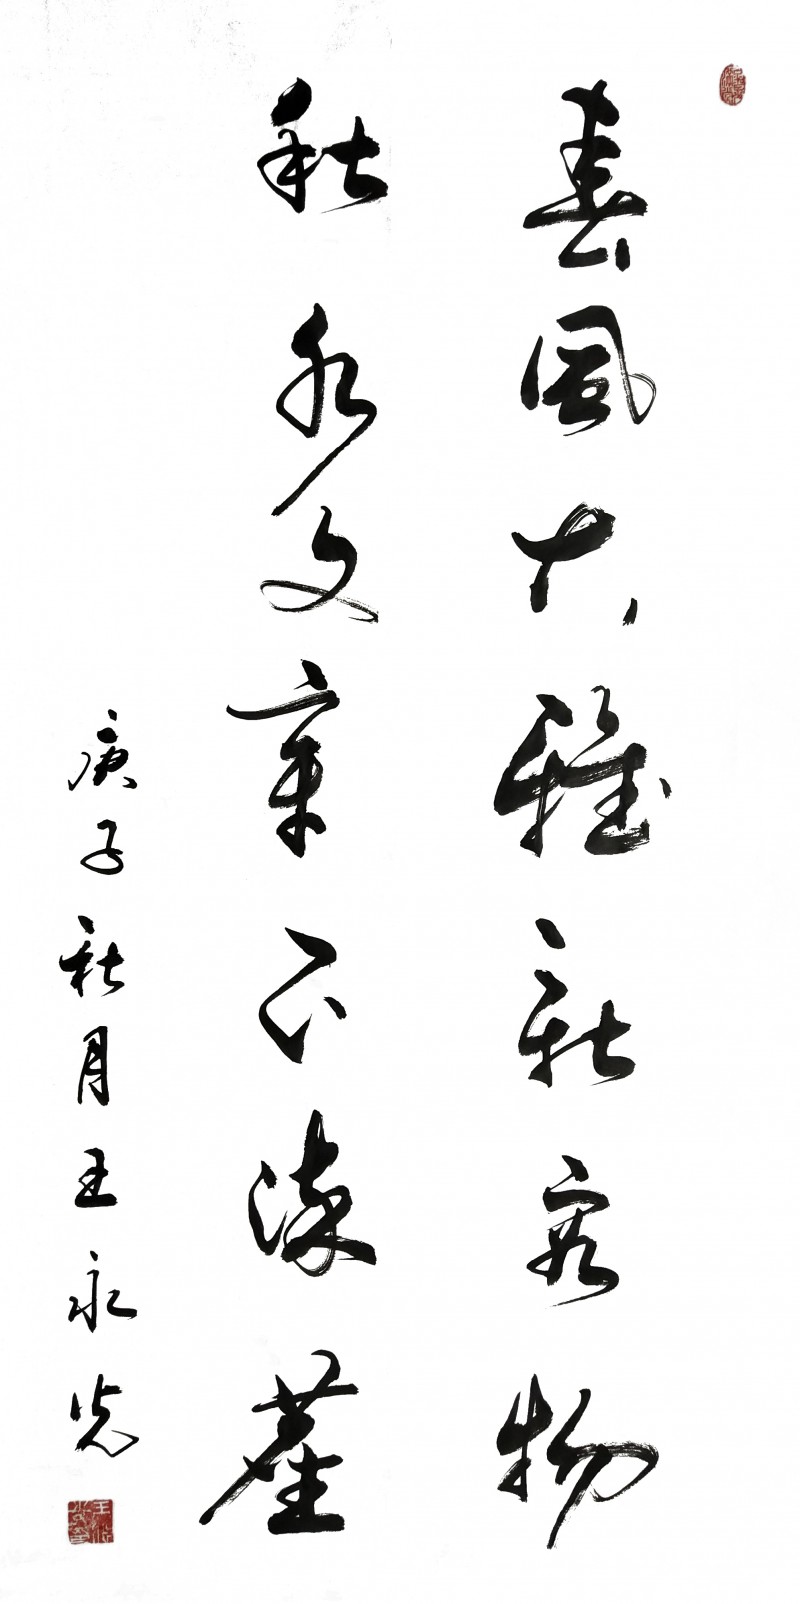 春風大雅能容物
秋水文章不染塵
庚子秋月王永